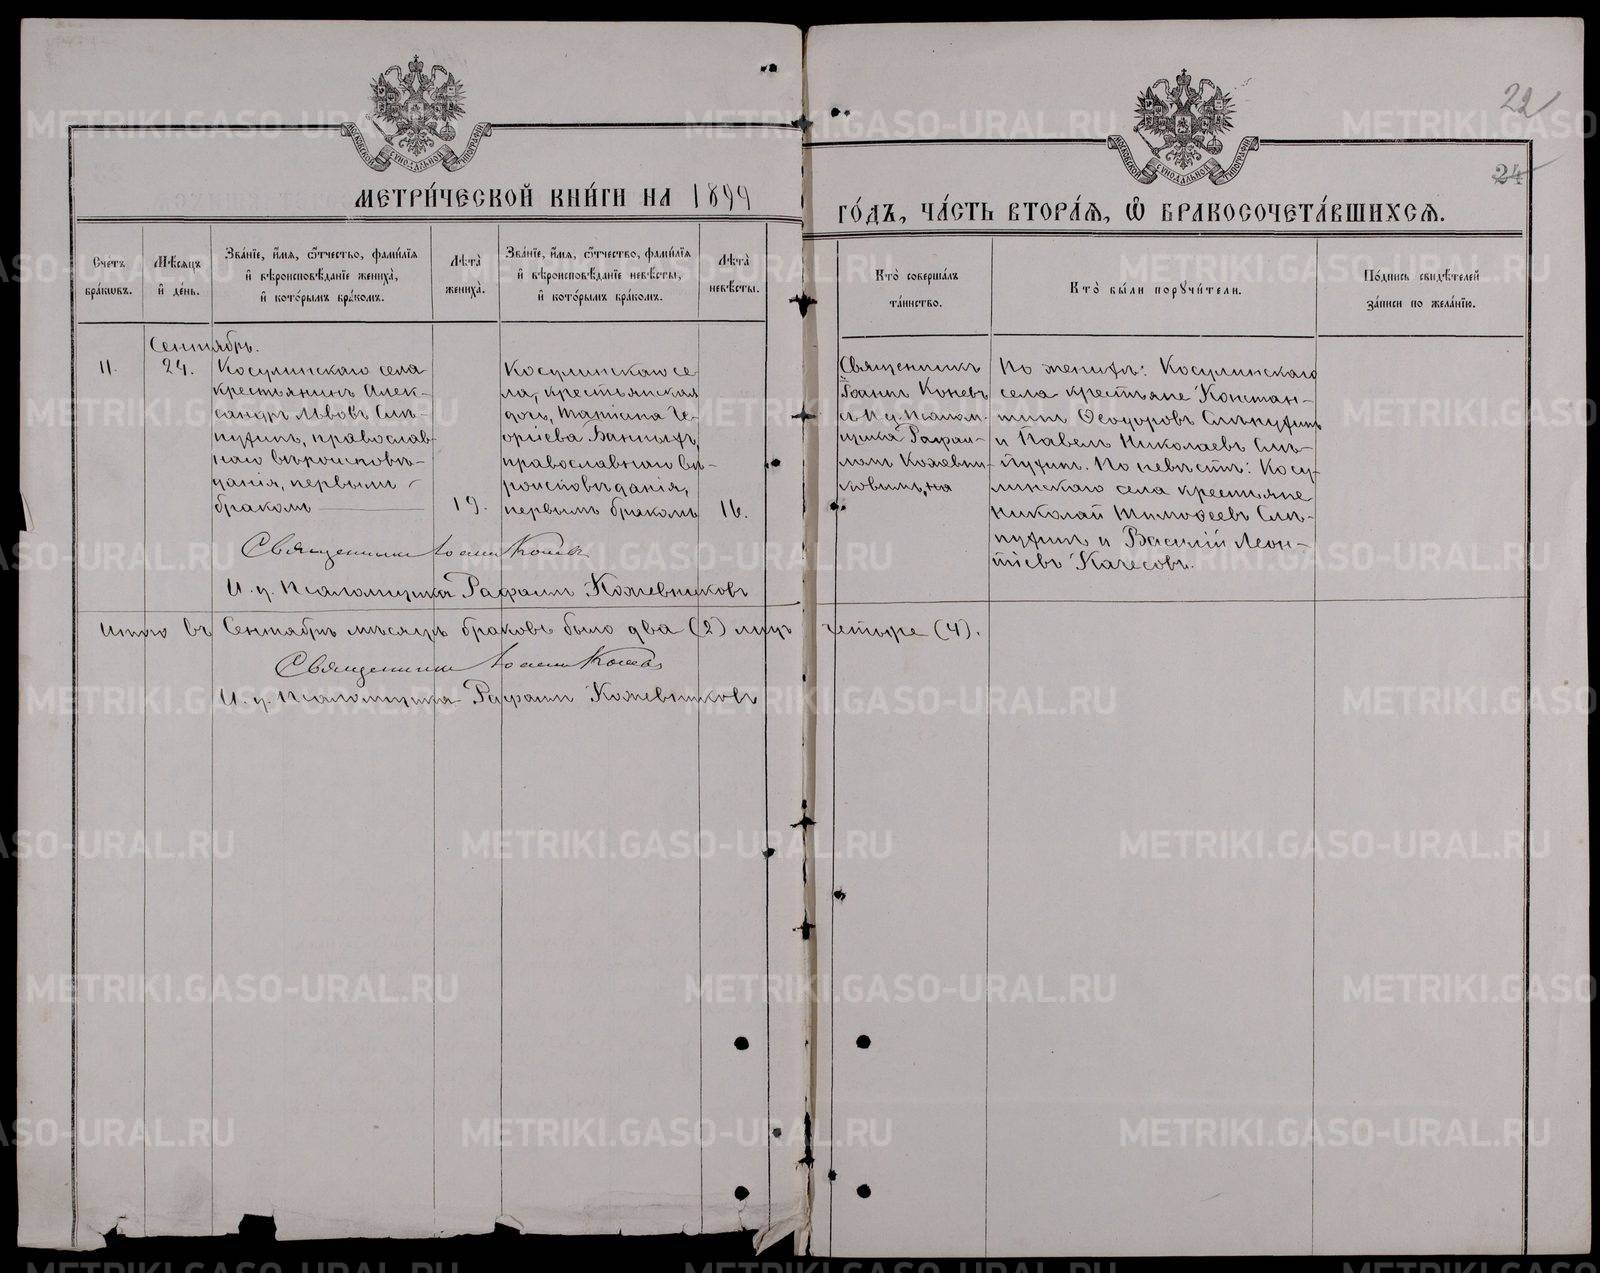 22
24
МОСКОВСКОЙ СѴНОДАЛЬНОЙ ТИПОГРАФІИ
МОСКОВСКОЙ СѴНОДАЛЬНОЙ ТИПОГРАФІИ
МЕТРИ́ЧЕСКОЙ КНИ́ГИ НА 1899
ГО́ДЪ, ЧА́СТЬ ВТОРА́Я, Ѡ БРАКОСОЧЕТА́ВШИХСЯ.
Счетъ бра́ковъ.
Мѣ́сяцъ и҆ де́нь.
Зва́нїе, и҆́мя, ѻ҆́тчество, фами́лїя
и҆ вѣроисповѣ́данїе жениха̀,
и҆ кото́рымъ бра́комъ.
Лѣта̀ жениха̀.
Зва́нїе, и҆́мя, ѻ҆́тчество, фами́лїя
и҆ вѣроисповѣ́данїе невѣ́сты,
и҆ кото́рымъ бра́комъ.
Лѣта̀ невѣ́сты.
Кто̀ соверша́лъ
та́инство.
Кто̀ бы́ли порꙋчи́тели.
По́дпись свидѣ́телей
за́писи по жела́нїю.
Сентябрь.
11.
24.
Косулинскаго села
крестьянинъ Алек-
сандръ Львовъ Слѣ-
пухинъ, православ-
наго вѣроисповѣ-
данія, первымъ
бракомъ
19.
Косулинскаго се-
ла, крестьянская
дочь, Татіана Ге-
оргіева Банныхъ,
православнаго вѣ-
роисповѣданія,
первымъ бракомъ
16.
Священникъ
Іоаннъ Коневъ
съ И. д. псалом-
щика Рафаи-
ломъ Кожевни-
ковымъ
По женихѣ: Косулинскаго
села крестьяне Констан-
тинъ Ѳеодоровъ Слѣпухинъ
и Павелъ Николаевъ Слѣ-
пухинъ. По невѣстѣ: Косу-
линскаго села крестьяне
Николай Тимоѳеевъ Слѣ-
пухинъ и Василій Леон-
тіевъ Качесовъ.
Священникъ Іоаннъ Коневъ
И. д. Псаломщика Рафаилъ Кожевниковъ
Итого въ Сентябрѣ мѣсяцѣ браковъ было два (2) лицъ четыре (4).
Священникъ Іоаннъ Коневъ
И. д. Псаломщика Рафаилъ Кожевниковъ
METRIKI.GASO-URAL.RU